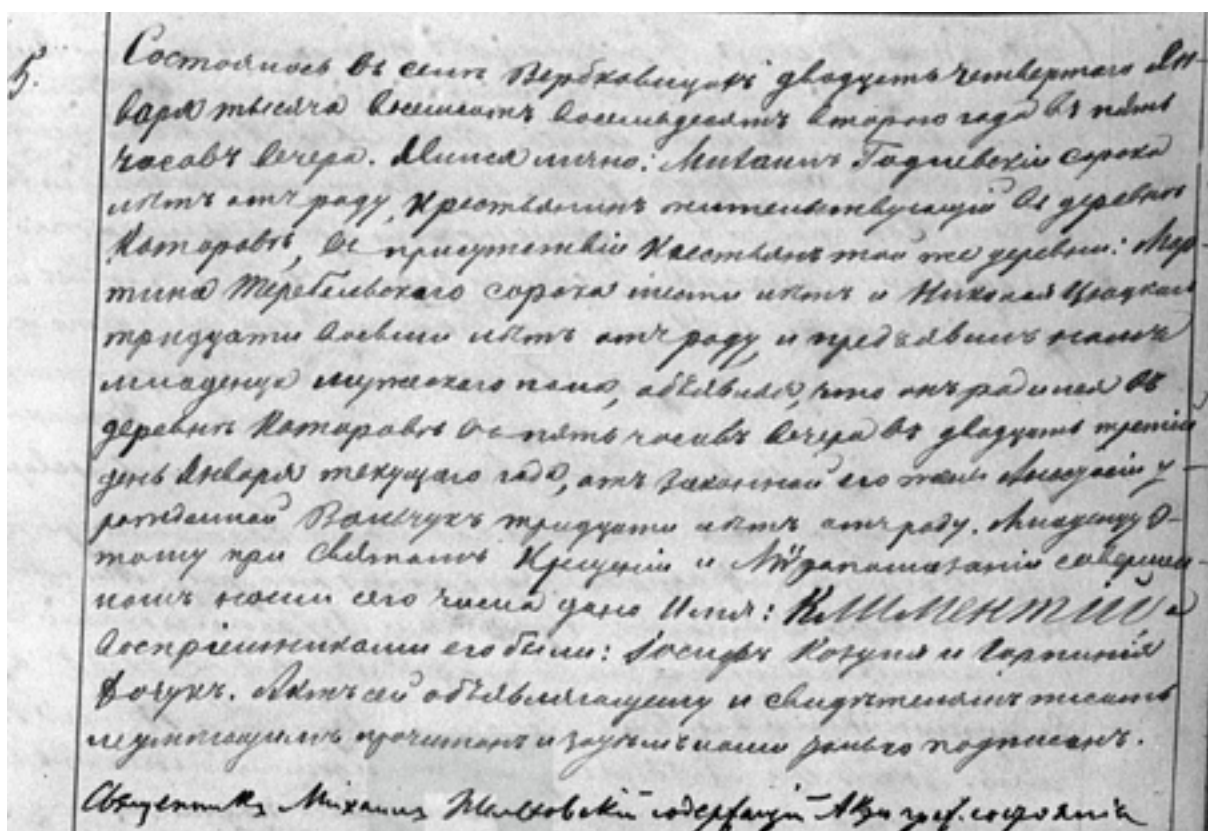 5.
Состоялось въ селѣ Вербковицахъ двадцать четвертаго Ян-
варя тысяча восемьсотъ восемьдесятъ втораго года въ пять
часовъ вечера. Явился лично: Михаилъ Годлевскій сорока
лѣтъ отъ роду, крестьянинъ жительствующій въ деревнѣ
Которовѣ, въ присутствіи крестьянъ той же деревни: Мар-
тина Теребельскаго сорока шести лѣтъ и Николая
тридцати восьми лѣтъ отъ роду, и предъявилъ намъ
младенца мужескаго пола, объявляя, что онъ родился въ
деревнѣ Которовѣ въ пять часовъ вечера въ двадцать третій
день Января текущаго года, отъ законной его жены у-
рожденной тридцати лѣтъ отъ роду. Младенцу э-
тому при Святомъ Крещеніи и Мѵропомазаніи совершен-
номъ нами сего числа дано Имя: Климентій а
воспріемниками его были: Іосифъ Козупя и Горпинія
Актъ сей объявляющему и свидѣтелямъ писать
неумѣющимъ прочитанъ и нами только подписанъ.
Священникъ Михаилъ содержащій Акты гр. состоянія